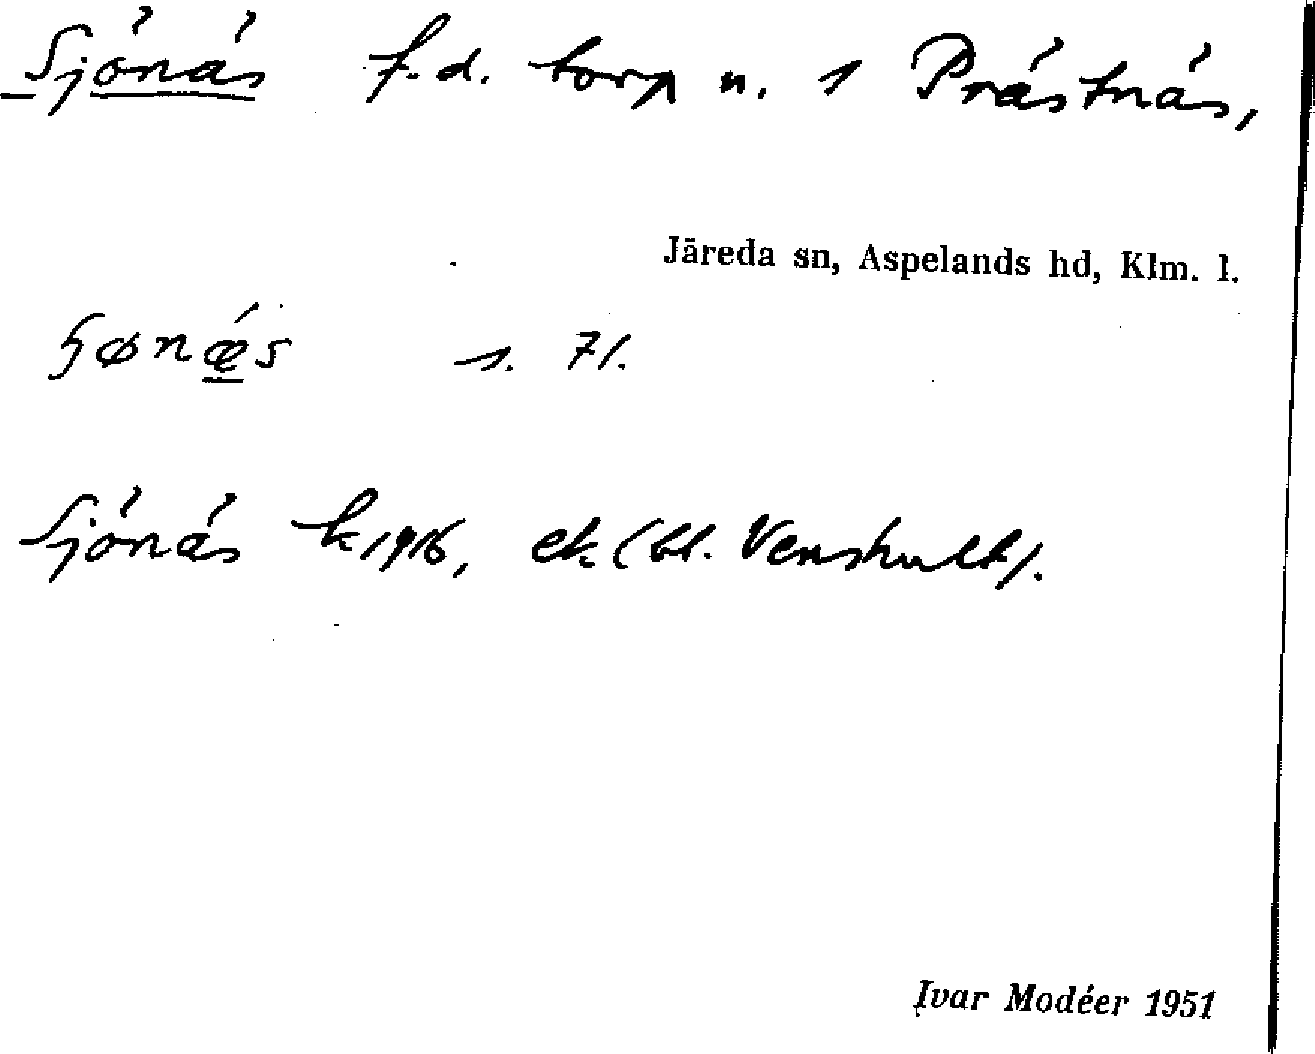 Sjönäs f.d. torp n. 1 Prästnäs,
Järeda sn, Aspelands hd, Klm. l.
ɧønǽ̲s s. 71.
Sjönäs k 1916, ek (bl. Venshult).
Ivar Modéer 1951